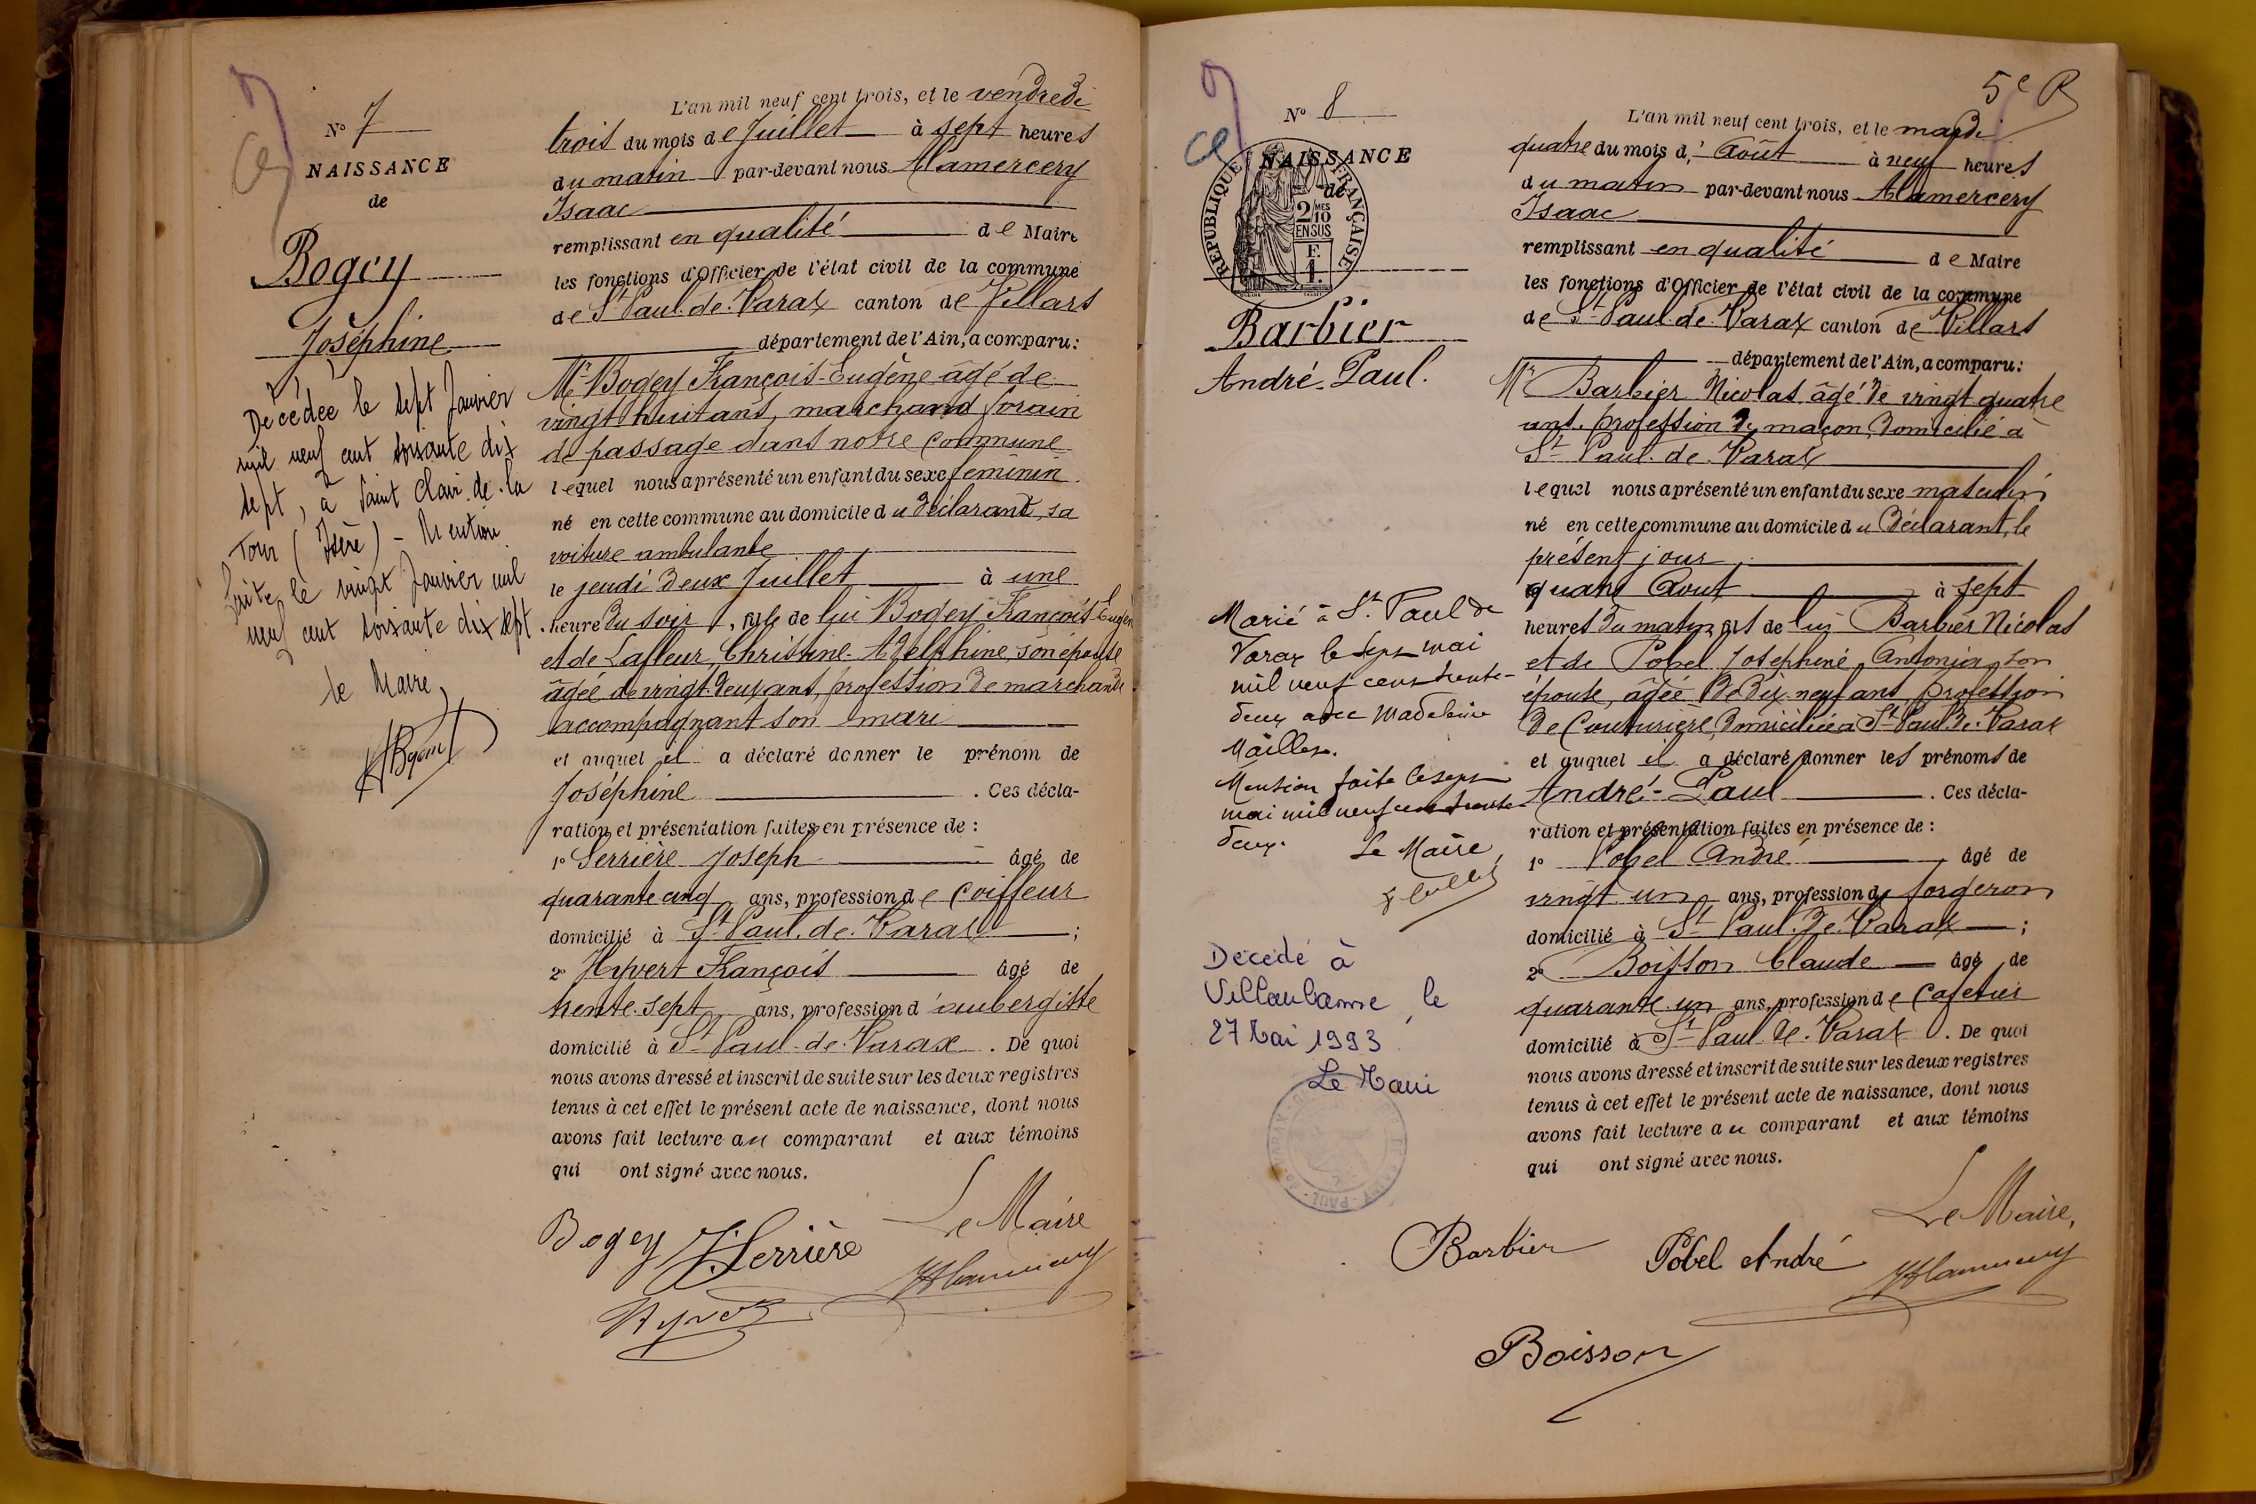 N° 7
NAISSANCE
de
Bogey
Joséphine
Décédée le sept Janvier
mil neuf cent soixante dix
sept, à Saint Clair de la
Tour (Isère) - Mention
faite le vingt Janvier mil
neuf cent soixante dix sept
le Maire,
L'an mil neuf cent trois, et le vendredi
trois du mois de Juillet à sept heures
du matin par-devant nous Alamercery
Isaac
remplissant en qualité de Maire
les fonctions d'Officier de l'état civil de la commune
de St Paul de Varax canton de Villars
département de l'Ain, a comparu:
Mr Bogey François-Eugène âgé de
vingt huit ans, marchand forain
de passage dans notre commune
lequel nous a présenté un enfant du sexe féminin
né en cette commune au domicile du déclarant, sa
voiture ambulante
le jeudi deux Juillet à une
heure du soir, fille de lui Bogey François Eugène
et de Lafleur, Christine-Adelphine, son épouse
âgée de vingt deux ans, profession de marchande
accompagnant son mari
et auquel il a déclaré donner le prénom de
Joséphine. Ces décla-
ration et présentation faites en présence de :
1° Serrière Joseph âgé de
quarante cinq ans, profession de Coiffeur
domicilié à St Paul. de. Varax ;
2° Hyvert François âgé de
trente. sept ans, profession d'aubergiste
domicilié à St Paul. de. Varax. De quoi
nous avons dressé et inscrit de suite sur les deux registres
tenus à cet effet le présent acte de naissance, dont nous
avons fait lecture au comparant et aux témoins
qui ont signé avec nous.
Le Maire
Bogey J. Serrière
Hyvert
5e R
N° 8
NAISSANCE
de
REPUBLIQUE FRANÇAISE
2 MES
10
EN SUS
F.
1.
Barbier
André-Paul.
Marié à St Paul de
Varax le sept mai
mil neuf cent trente-
deux avec Madeleine
Mention faite le sept
mai mil neuf cent trente
deux.
Le Maire,
Décédé à
Villeurbanne, le
27 Mai 1993
Le Maire
L'an mil neuf cent trois, et le mardi
quatre du mois d'Août à neuf heures
du matin par-devant nous Alamercery
Isaac
remplissant en qualité de Maire
les fonctions d'Officier de l'état civil de la commune
de St Paul de Varax canton de Villars
département de l'Ain, a comparu:
Mr Barbier Nicolas âgé de vingt quatre
ans, profession de maçon, domicilié à
St Paul. de. Varax
lequel nous a présenté un enfant du sexe masculin
né en cette commune au domicile du Déclarant, le
présent jour
quatre Aout à sept
heures du matin, fils de lui Barbier Nicolas
et de Pobel Joséphine Antonia, son
épouse, âgée de Dix neuf ans, profession
de Couturière, domiciliée à St Paul de. Varax
et auquel il a déclaré donner les prénoms de
André-Paul. Ces décla-
ration et présentation faites en présence de :
1° Pobel André âgé de
vingt un ans, profession de forgeron
domicilié à St Paul. de. Varax ;
2° Boisson Claude âgé de
quarante un ans, profession de Cafetier
domicilié à St Paul de. Varax. De quoi
nous avons dressé et inscrit de suite sur les deux registres
tenus à cet effet le présent acte de naissance, dont nous
avons fait lecture au comparant et aux témoins
qui ont signé avec nous.
Le Maire,
Barbier Pobel André
Boisson